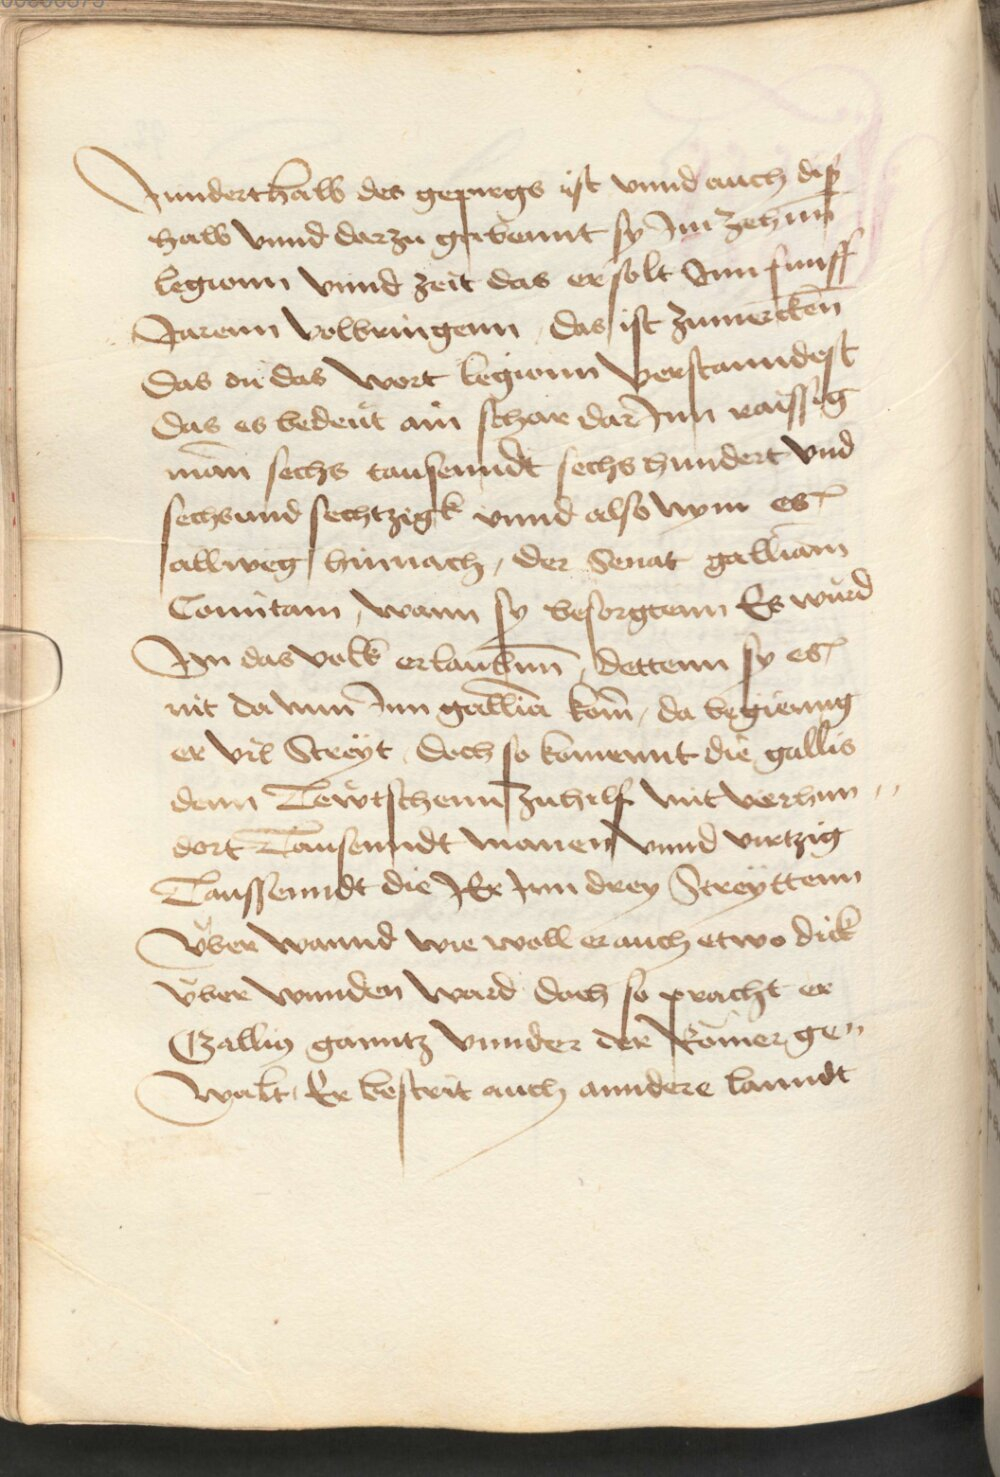 Innderthalb des gepiegs ist vnnd auch diß
halb vnnd darzu gabennt sy Im zehnn̄
legionn vnnd zeit das er solt Inn funff
Jarenn volbringenn, das ist zumerckēn
das du das wort legionn verstanndest
das es bedeut ain schar dar Inn raissig
man̄ sechs tausenndt sechs hundert vnd
sechsund sechtzigk vnnd also nym es
allweg hinnach, der Senat galliam
Comitam, wann sy besorgtenn Es wurd
Im das volk erlaubnn̄, dettenn sy es
nit da nun Inn gallia kom̄, da begienng
er vil Streyt, doch so komennt die gallis
denn Tewtschenn zuhilf mit vierhun
dort Tausenndt manen vnnd virtzig
Taussenndt die Er Inn drey Streyttenn
vber wannd wie woll er auch etwo dick
vber wunden ward doch so pracht er
Gallin ganntz vnnder der Romer ge
walt, Er bestrit auch anndere lanndt